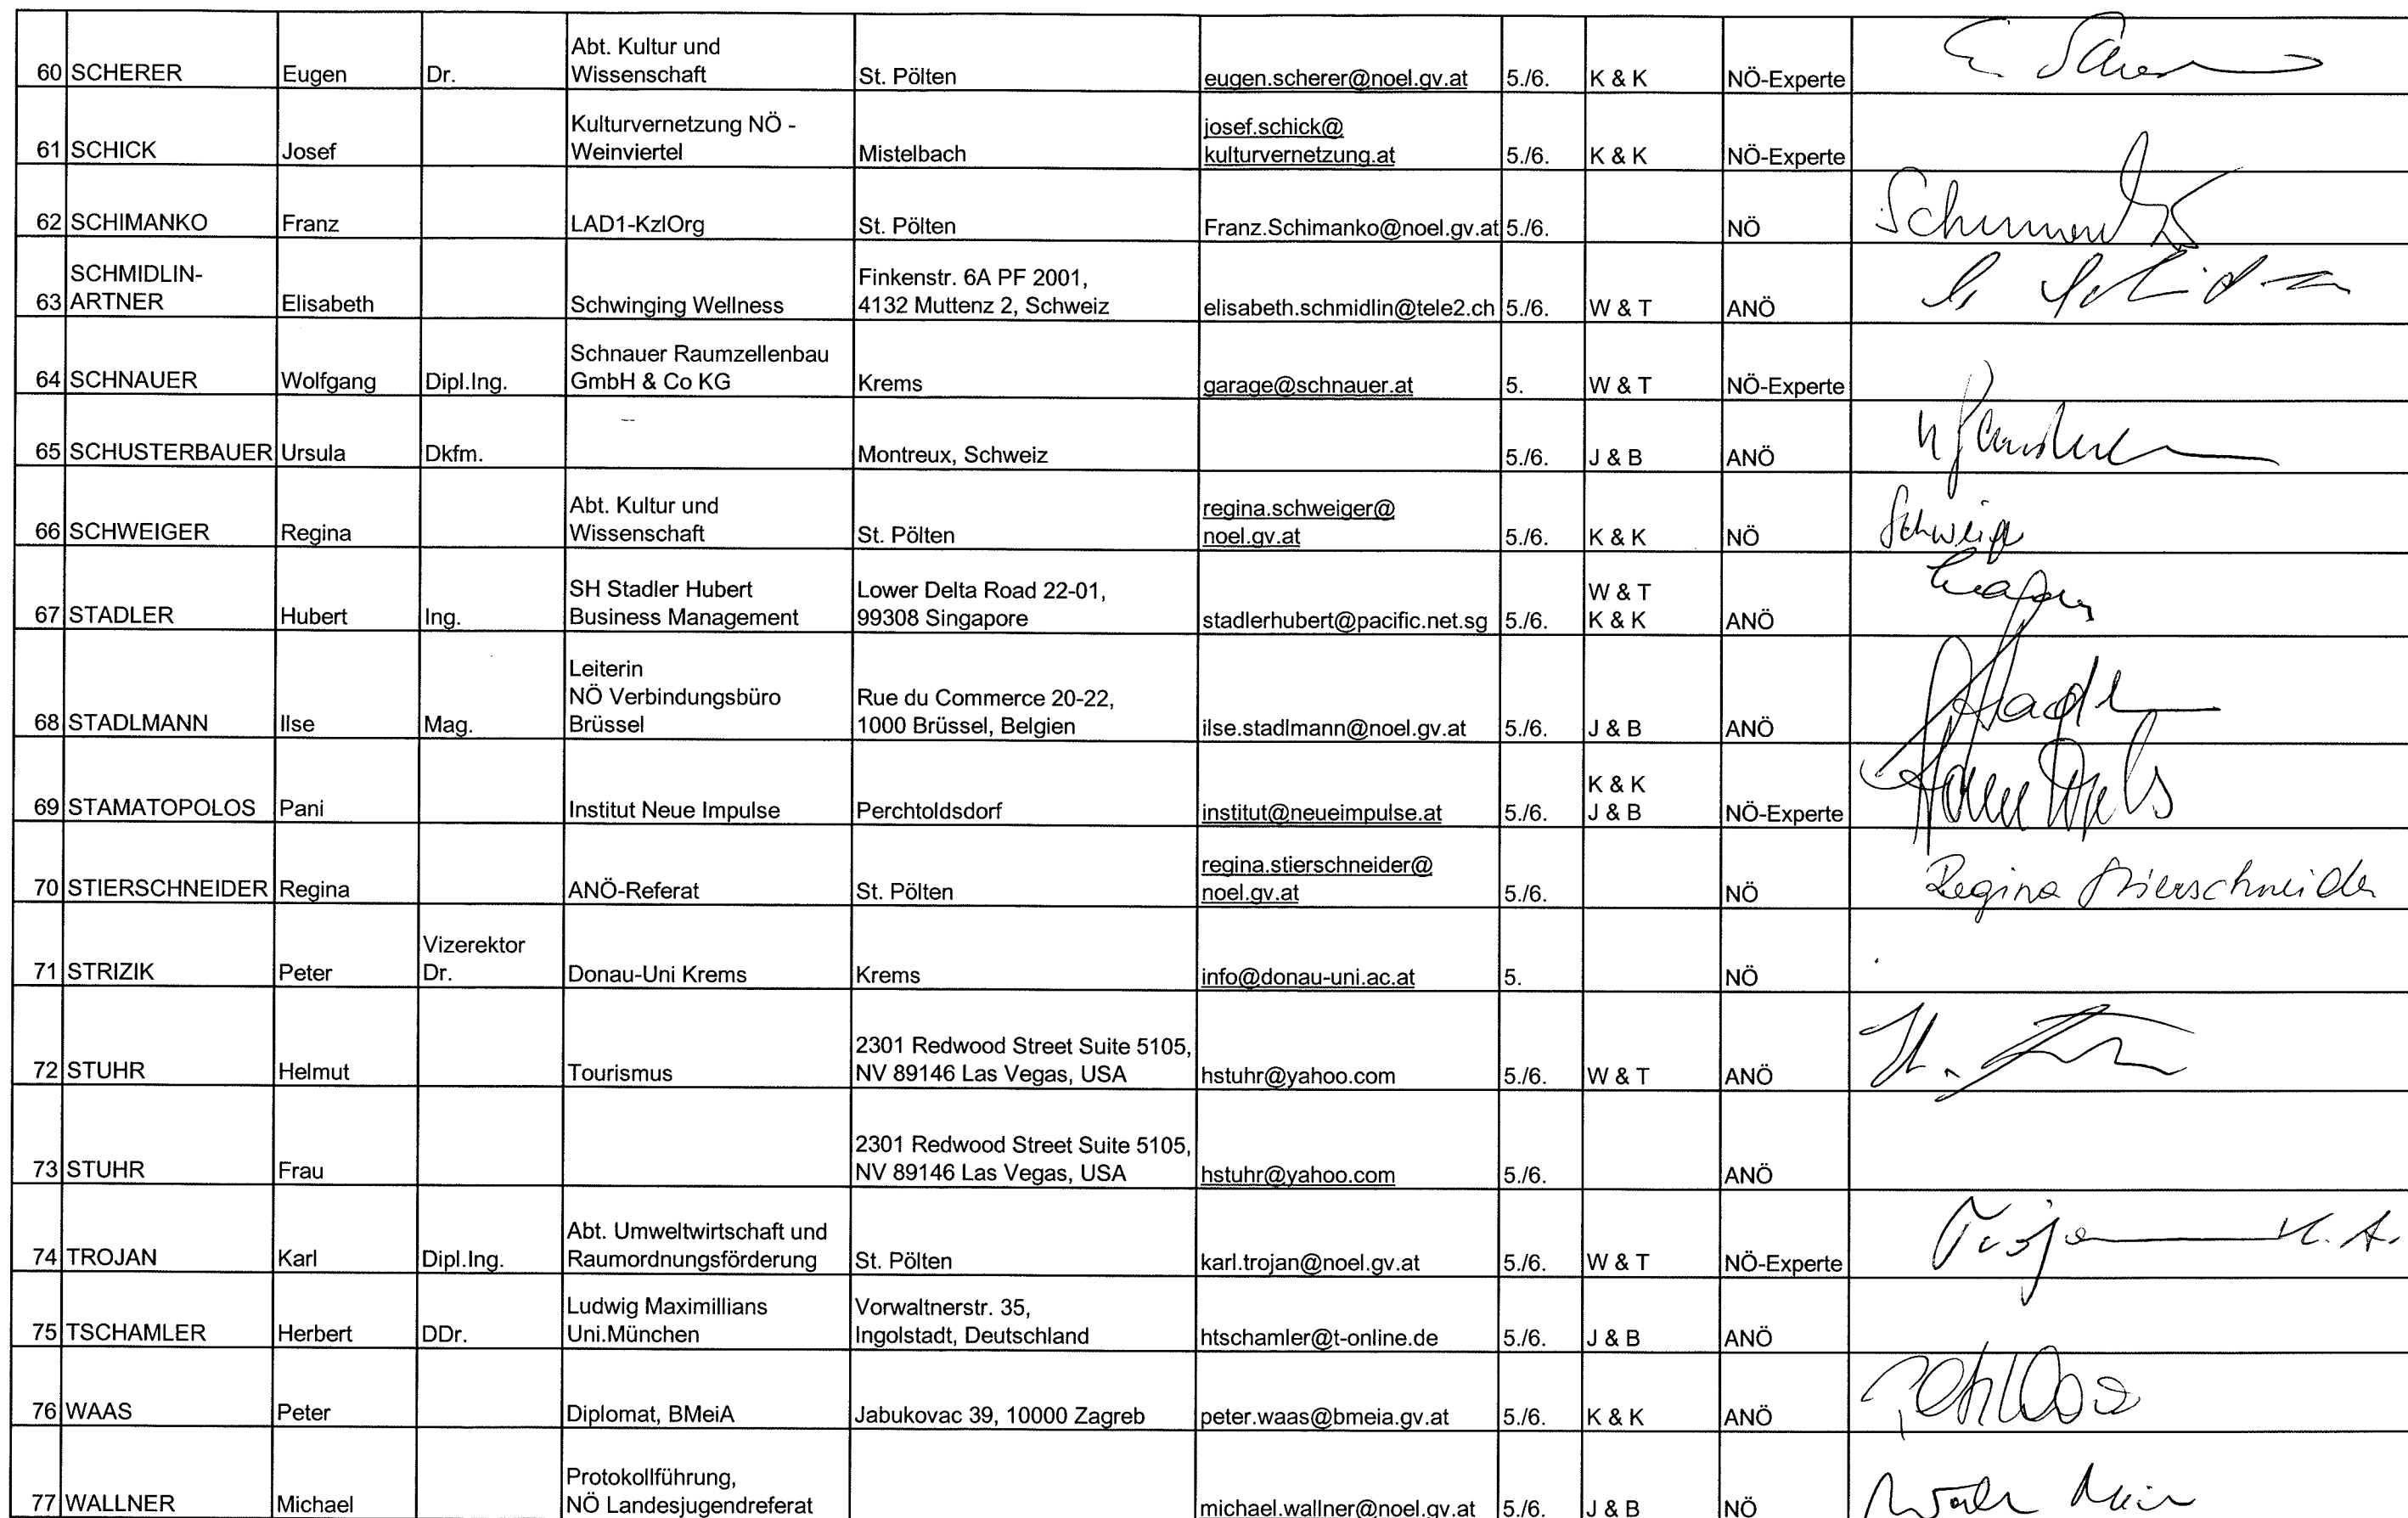 60 SCHERER Eugen Dr. Abt. Kultur und Wissenschaft St. Pölten eugen.scherer@noel.gv.at 5./6. K & K NÖ-Experte
61 SCHICK Josef Kulturvernetzung NÖ - Weinviertel Mistelbach josef.schick@ kulturvernetzung.at 5./6. K & K NÖ-Experte
62 SCHIMANKO Franz LAD1-KzlOrg St. Pölten Franz.Schimanko@noel.gv.at 5./6. NÖ
63 SCHMIDLIN-ARTNER Elisabeth Schwinging Wellness Finkenstr. 6A PF 2001, 4132 Muttenz 2, Schweiz elisabeth.schmidlin@tele2.ch 5./6. W & T ANÖ
64 SCHNAUER Wolfgang Dipl.Ing. Schnauer Raumzellenbau GmbH & Co KG Krems garage@schnauer.at 5. W & T NÖ-Experte
65 SCHUSTERBAUER Ursula Dkfm. Montreux, Schweiz 5./6. J & B ANÖ
66 SCHWEIGER Regina Abt. Kultur und Wissenschaft St. Pölten regina.schweiger@ noel.gv.at 5./6. K & K NÖ
67 STADLER Hubert Ing. SH Stadler Hubert Business Management Lower Delta Road 22-01, 99308 Singapore stadlerhubert@pacific.net.sg 5./6. W & T K & K ANÖ
68 STADLMANN Ilse Mag. Leiterin NÖ Verbindungsbüro Brüssel Rue du Commerce 20-22, 1000 Brüssel, Belgien ilse.stadlmann@noel.gv.at 5./6. J & B ANÖ
69 STAMATOPOLOS Pani Institut Neue Impulse Perchtoldsdorf institut@neueimpulse.at 5./6. K & K J & B NÖ-Experte
70 STIERSCHNEIDER Regina ANÖ-Referat St. Pölten regina.stierschneider@ noel.gv.at 5./6. NÖ Regina Stierschneider
71 STRIZIK Peter Vizerektor Dr. Donau-Uni Krems Krems info@donau-uni.ac.at 5. NÖ
72 STUHR Helmut Tourismus 2301 Redwood Street Suite 5105, NV 89146 Las Vegas, USA hstuhr@yahoo.com 5./6. W & T ANÖ
73 STUHR Frau 2301 Redwood Street Suite 5105, NV 89146 Las Vegas, USA hstuhr@yahoo.com 5./6. ANÖ
74 TROJAN Karl Dipl.Ing. Abt. Umweltwirtschaft und Raumordnungsförderung St. Pölten karl.trojan@noel.gv.at 5./6. W & T NÖ-Experte
75 TSCHAMLER Herbert DDr. Ludwig Maximillians Uni.München Vorwaltnerstr. 35, Ingolstadt, Deutschland htschamler@t-online.de 5./6. J & B ANÖ
76 WAAS Peter Diplomat, BMeiA Jabukovac 39, 10000 Zagreb peter.waas@bmeia.gv.at 5./6. K & K ANÖ
77 WALLNER Michael Protokollführung, NÖ Landesjugendreferat michael.wallner@noel.gv.at 5./6. J & B NÖ